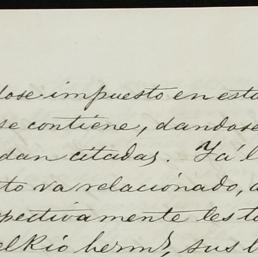 dose impuesto en esta
se contiene, dandose
dan citadas. Ya l
to va relacionado,
spectivamente les to
el Rio herm.s, sus